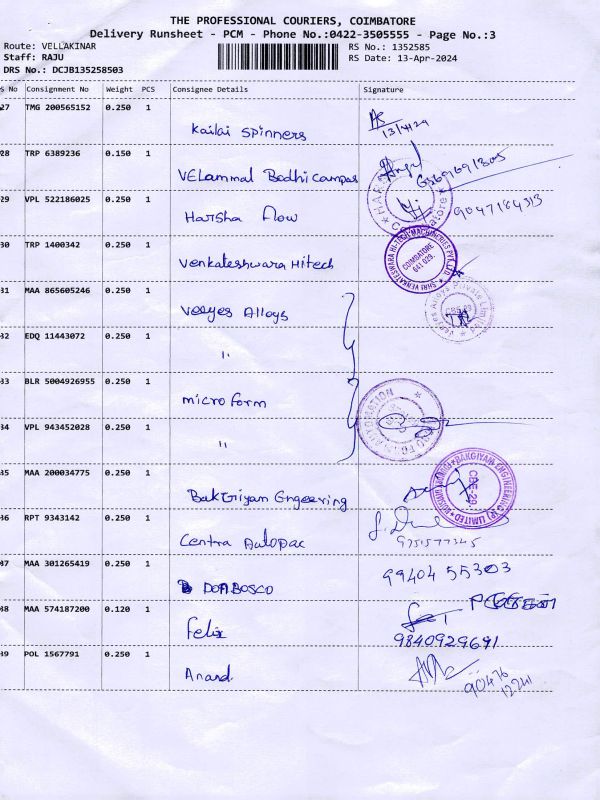 THE PROFESSIONAL COURIERS, COIMBATORE
Delivery Runsheet - PCM - Phone No.:0422-3505555 - Page No.:3
Route: VELLAKINAR
Staff: RAJU
DRS No.: DCJB135258503
RS No.: 1352585
RS Date: 13-Apr-2024
S No Consignment No Weight PCS Consignee Details Signature
27 TMG 200565152 0.250 1
Kailai Spinners 13/4/24
28 TRP 6389236 0.150 1
Velammal Bodhi Campus
29 VPL 522186025 0.250 1
Harsha flow 9047184313
30 TRP 1400342 0.250 1
Venkateshwara Hitech
SHRI VENKATESWARA HI-TECH MACHINERIES PVT. LTD.
COIMBATORE
641 029.
31 MAA 865605246 0.250 1
Veeyes Alloys
32 EDQ 11443072 0.250 1
"
33 BLR 5004926955 0.250 1
micro form
34 VPL 943452028 0.250 1
"
35 MAA 200034775 0.250 1
Bakgiyam Engeering
BAKGIYAM ENGINEERING (P) LIMITED
CBE-29.
36 RPT 9343142 0.250 1
Centra Autopac 9751577345
37 MAA 301265419 0.250 1
DONBOSCO 99404 55303
38 MAA 574187200 0.120 1
Felix
9840929691
39 POL 1567791 0.250 1
Anand
90476
12241